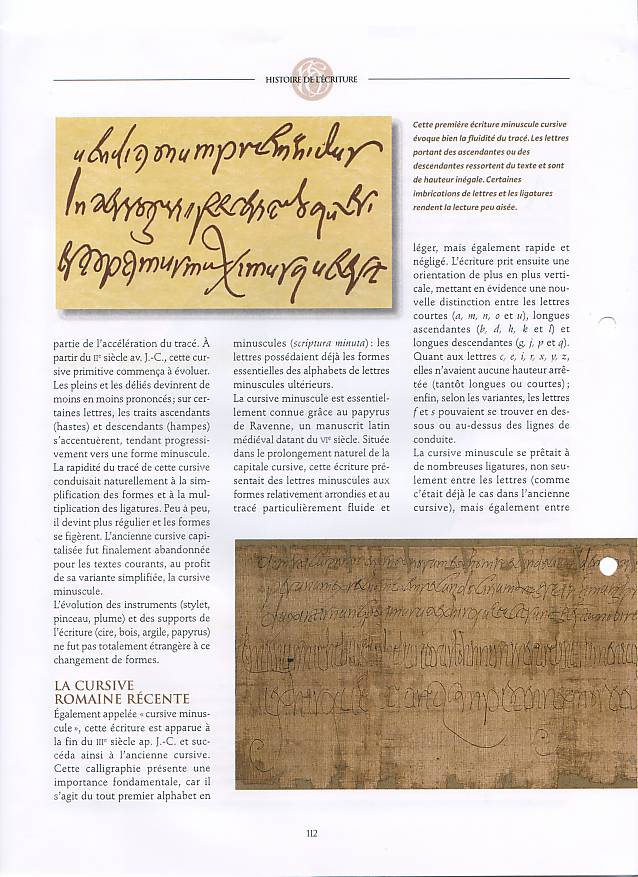 HISTOIRE DE L'ÉCRITURE
Cette première écriture minuscule cursive
évoque bien la fluidité du tracé. Les lettres
portant des ascendantes ou des
descendantes ressortent du texte et sont
de hauteur inégale. Certaines
imbrications de lettres et les ligatures
rendent la lecture peu aisée.
partie de l'accélération du tracé. À
partir du IIe siècle av. J.-C., cette cur-
sive primitive commença à évoluer.
Les pleins et les déliés devinrent de
moins en moins prononcés ; sur cer-
taines lettres, les traits ascendants
(hastes) et descendants (hampes)
s'accentuèrent, tendant progressi-
vement vers une forme minuscule.
La rapidité du tracé de cette cursive
conduisait naturellement à la sim-
plification des formes et à la mul-
tiplication des ligatures. Peu à peu,
il devint plus régulier et les formes
se figèrent. L'ancienne cursive capi-
talisée fut finalement abandonnée
pour les textes courants, au profit
de sa variante simplifiée, la cursive
minuscule.
L'évolution des instruments (stylet,
pinceau, plume) et des supports de
l'écriture (cire, bois, argile, papyrus)
ne fut pas totalement étrangère à ce
changement de formes.
LA CURSIVE
ROMAINE RÉCENTE
Également appelée « cursive minus-
cule », cette écriture est apparue à
la fin du IIIe siècle ap. J.-C. et suc-
céda ainsi à l'ancienne cursive.
Cette calligraphie présente une
importance fondamentale, car il
s'agit du tout premier alphabet en
minuscules (scriptura minuta) : les
lettres possédaient déjà les formes
essentielles des alphabets de lettres
minuscules ultérieurs.
La cursive minuscule est essentiel-
lement connue grâce au papyrus
de Ravenne, un manuscrit latin
médiéval datant du VIe siècle. Située
dans le prolongement naturel de la
capitale cursive, cette écriture pré-
sentait des lettres minuscules aux
formes relativement arrondies et au
tracé particulièrement fluide et
léger, mais également rapide et
négligé. L'écriture prit ensuite une
orientation de plus en plus verti-
cale, mettant en évidence une nou-
velle distinction entre les lettres
courtes (a, m, n, o et u), longues
ascendantes (b, d, h, k et l) et
longues descendantes (g, j, p et q).
Quant aux lettres c, e, i, r, x, y, z,
elles n'avaient aucune hauteur arrê-
tée (tantôt longues ou courtes) ;
enfin, selon les variantes, les lettres
f et s pouvaient se trouver en des-
sous ou au-dessus des lignes de
conduite.
La cursive minuscule se prêtait à
de nombreuses ligatures, non seu-
lement entre les lettres (comme
c'était déjà le cas dans l'ancienne
cursive), mais également entre
112